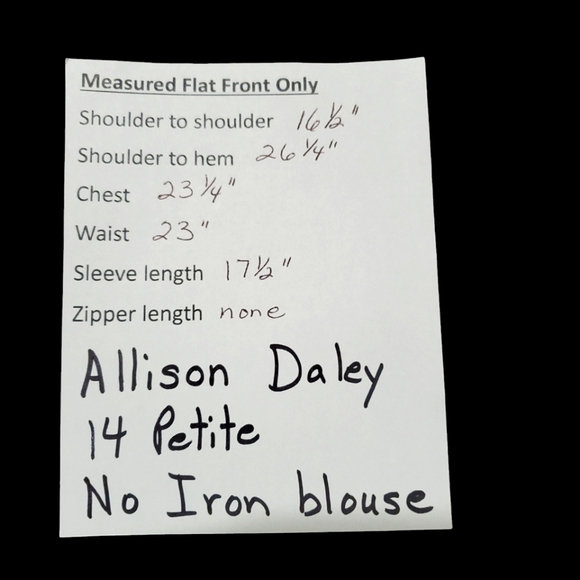 Measured Flat Front Only
Shoulder to shoulder 16 1/2"
Shoulder to hem 26 1/4"
Chest 23 1/4"
Waist 23"
Sleeve length 17 1/2"
Zipper length none
Allison Daley
14 Petite
No Iron blouse